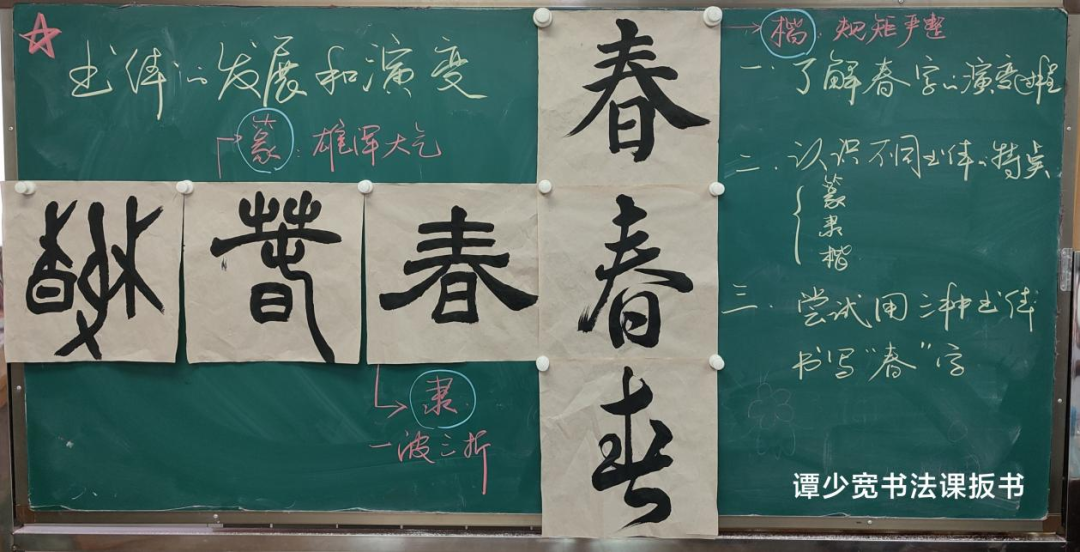 书体的发展和演变
篆：雄浑大气
春
春
春
隶
一波三折
春
春
春
楷：规矩严整
一．了解春字的演变过程
二．认识不同书体的特点
篆
隶
楷
三．尝试用三种书体
书写“春”字
谭少宽书法课扳书